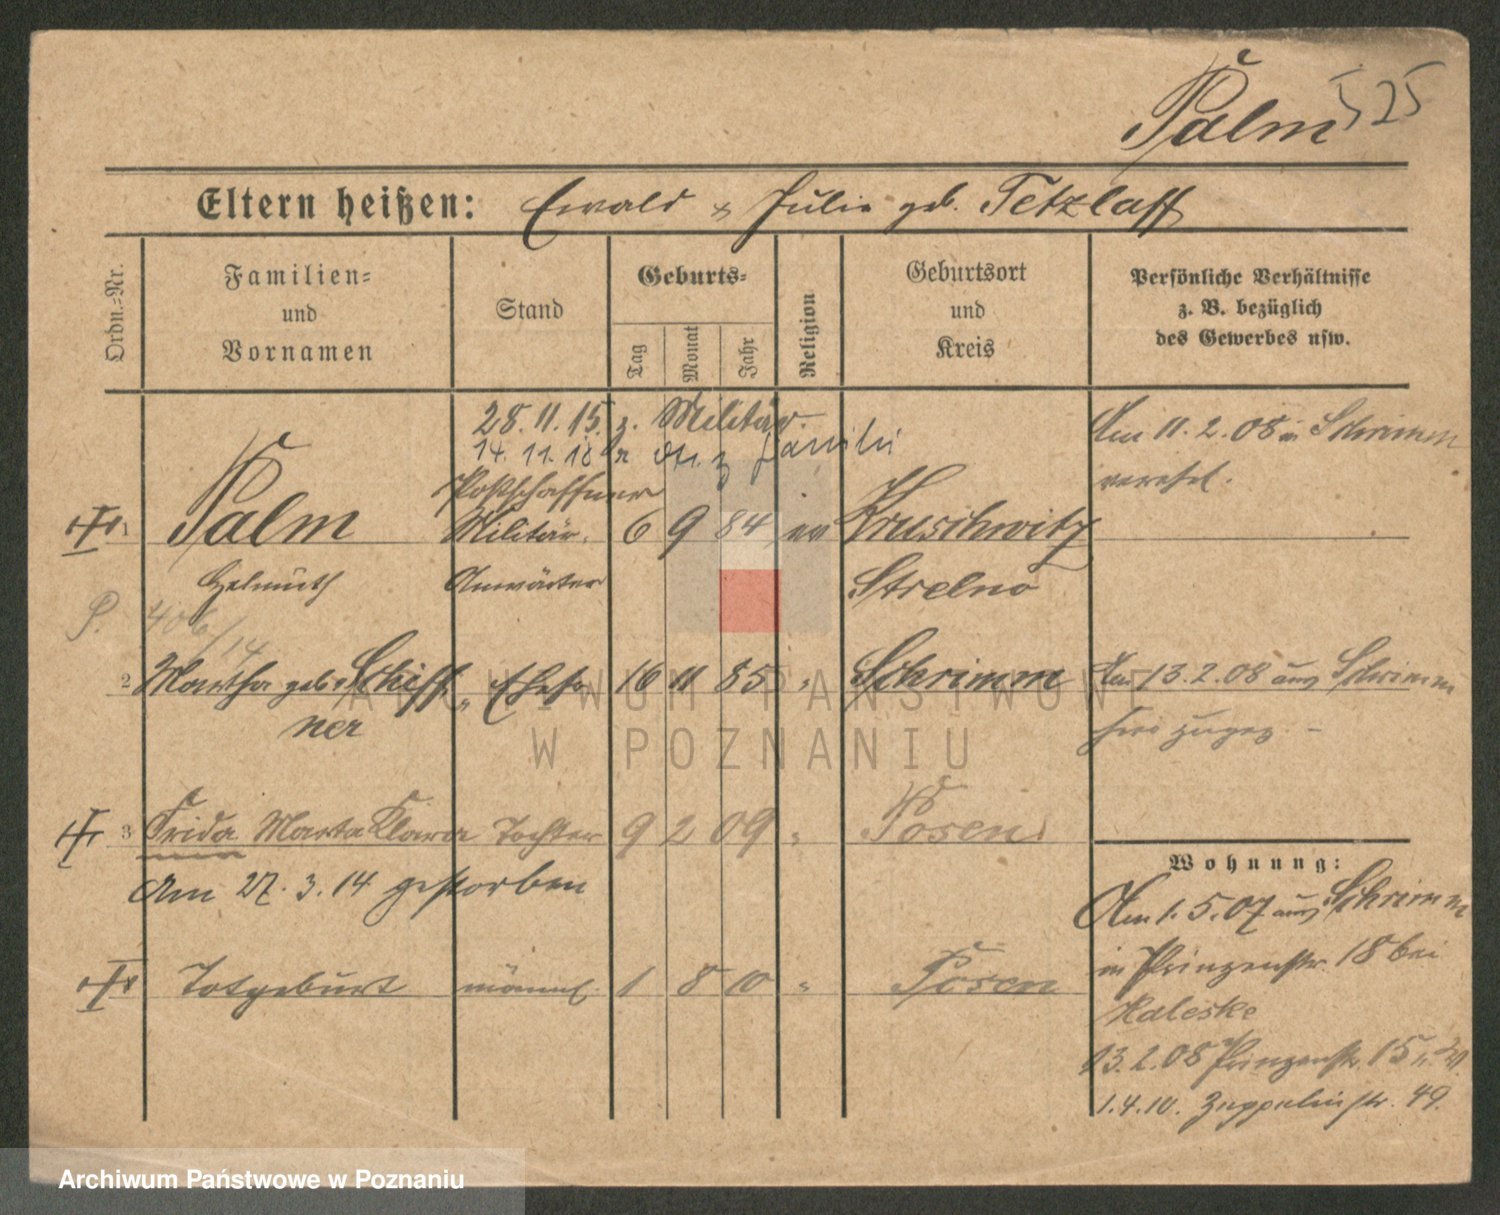 525
Palm
Eltern heißen: Ewald & Julie geb. Tetzlaff
Ordn.-Nr.
Familien-
und
Vornamen
Stand
Geburts-
Tag
Monat
Jahr
Religion
Geburtsort
und
Kreis
Persönliche Verhältnisse
z. B. bezüglich
des Gewerbes usw.
28. 11. 15. z. Militär.
14. 11. 18 z Familie
Am 11. 2. 08 in Schrimm
verehel.
Postschaffner
1 Palm Militär. 6 9 84 ev Kruschwitz
Helmuth Anwärter Strelno
P. 406/14
2 Martha geb. Schiff- " Ehefr 16 11 85 " Schrimm Am 13. 2. 08 aus Schrimm
ner
hier zugez. -
3 Frida Marta Klara Tochter 9 2 09 " Posen
Am 27. 3. 14 gestorben
Totgeburt männl. 1 8 10 " Posen
Wohnung:
Am 1. 5. 07 aus Schrimm
in Prinzenstr. 18 bei
Kaleske
13. 2. 08 Prinzenstr. 15
1. 4. 10. Zeppelinstr. 49.
ARCHIWUM PAŃSTWOWE
W POZNANIU
Archiwum Państwowe w Poznaniu